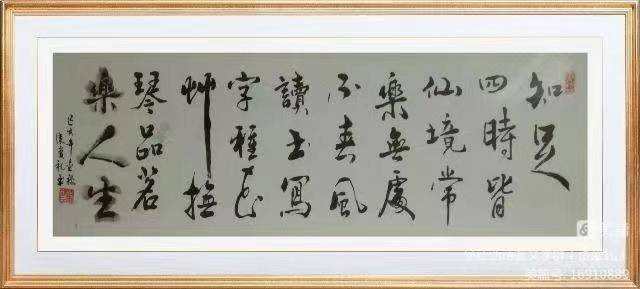 知足
四時皆
仙境常
樂無處
不春風
讀书寫
字種花
艸撫
琴品茗
樂人生
己亥年
美篇号: 16910889